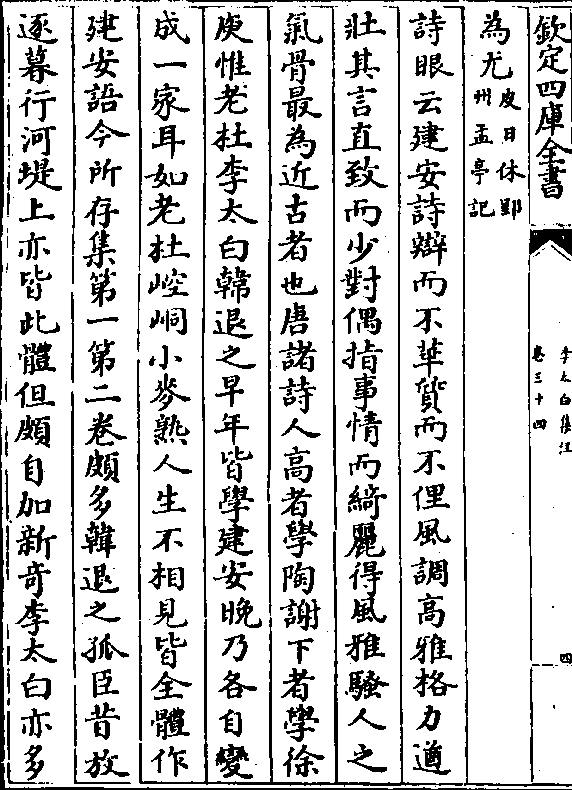 欽定四庫全書
李太白集注
卷三十四
四
為尤皮日休郢
州孟亭記
詩眼云建安詩辯而不華質而不俚風調高雅格力遒
壯其言直致而少對偶指事情而綺麗得風雅騷人之
氣骨最為近古者也唐諸詩人高者學陶謝下者學徐
庾惟老杜李太白韓退之早年皆學建安晚乃各自變
成一家耳如老杜崆峒小麥熟人生不相見皆全體作
建安語今所存集第一第二卷頗多韓退之孤臣昔放
逐暮行河堤上亦皆此體但頗自加新奇李太白亦多